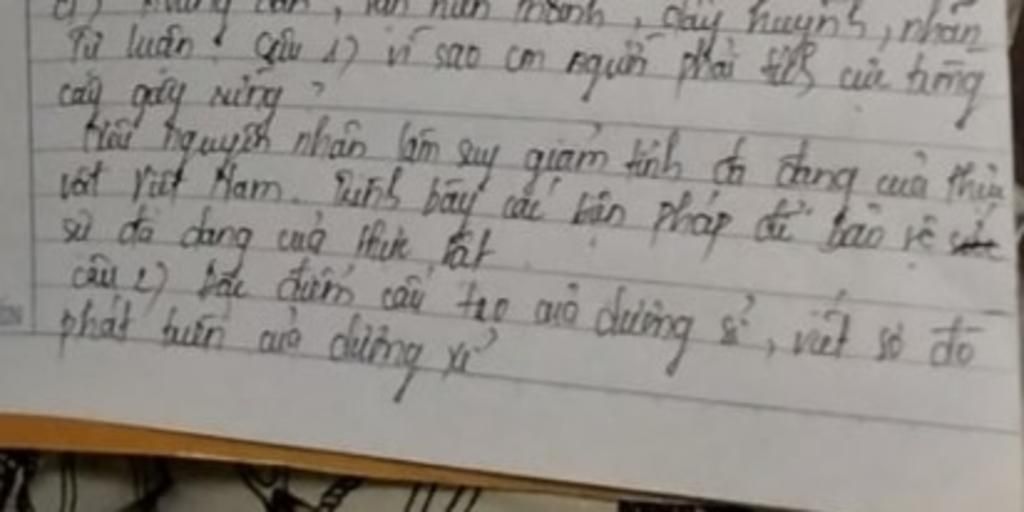 mảnh, dây huỳnh, nhãn
Tự luân! Câu 1) vì sao cm người phải tích cực trồng
cây gây rừng?
Nêu nguyên nhân làm suy giảm tính đa dạng của thực
vật Việt Nam. Trình bày các biện pháp để bảo vệ
sử đa dạng của thực vật
câu 2) Đặc điểm cấu tạo của dương sỉ, viết sơ đồ
phát triển của dương xỉ?